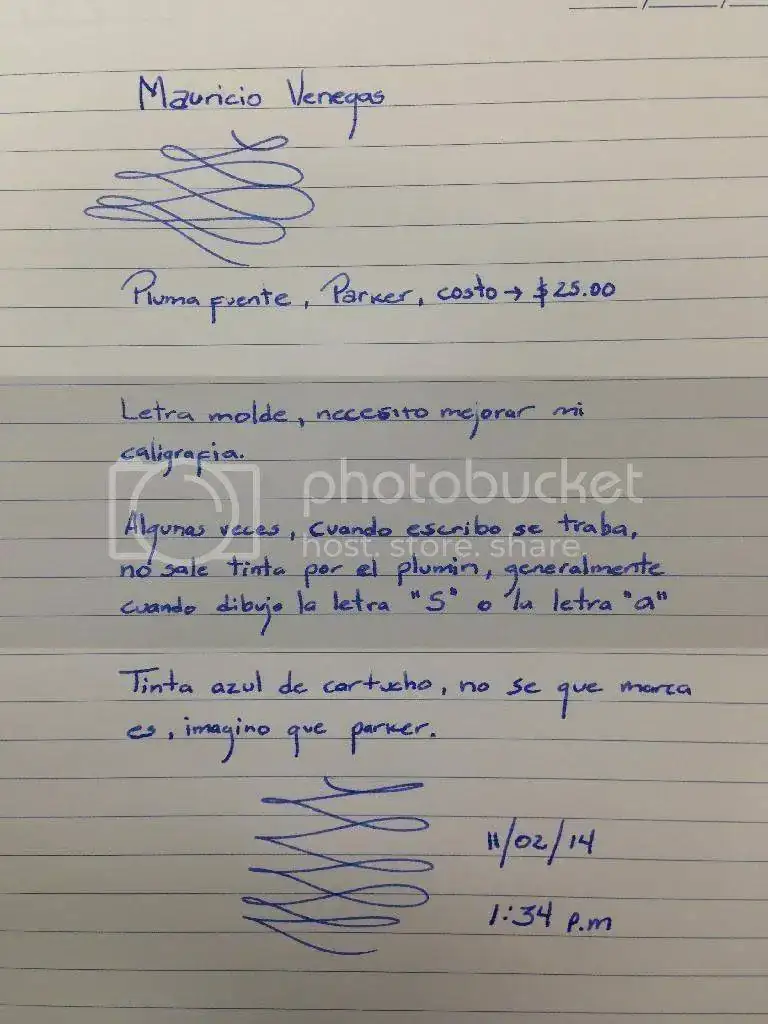 Mauricio Venegas
Pluma fuente, Parker, costo → $25.00
Letra molde, necesito mejorar mi
caligrafia.
photobucket
host. store. share
Algunas veces, cuando escribo se traba,
no sale tinta por el plumin, generalmente
cuando dibujo la letra "S" o la letra "a"
Tinta azul de cartucho, no se que marca
es, imagino que parker.
11/02/14
1:34 p.m